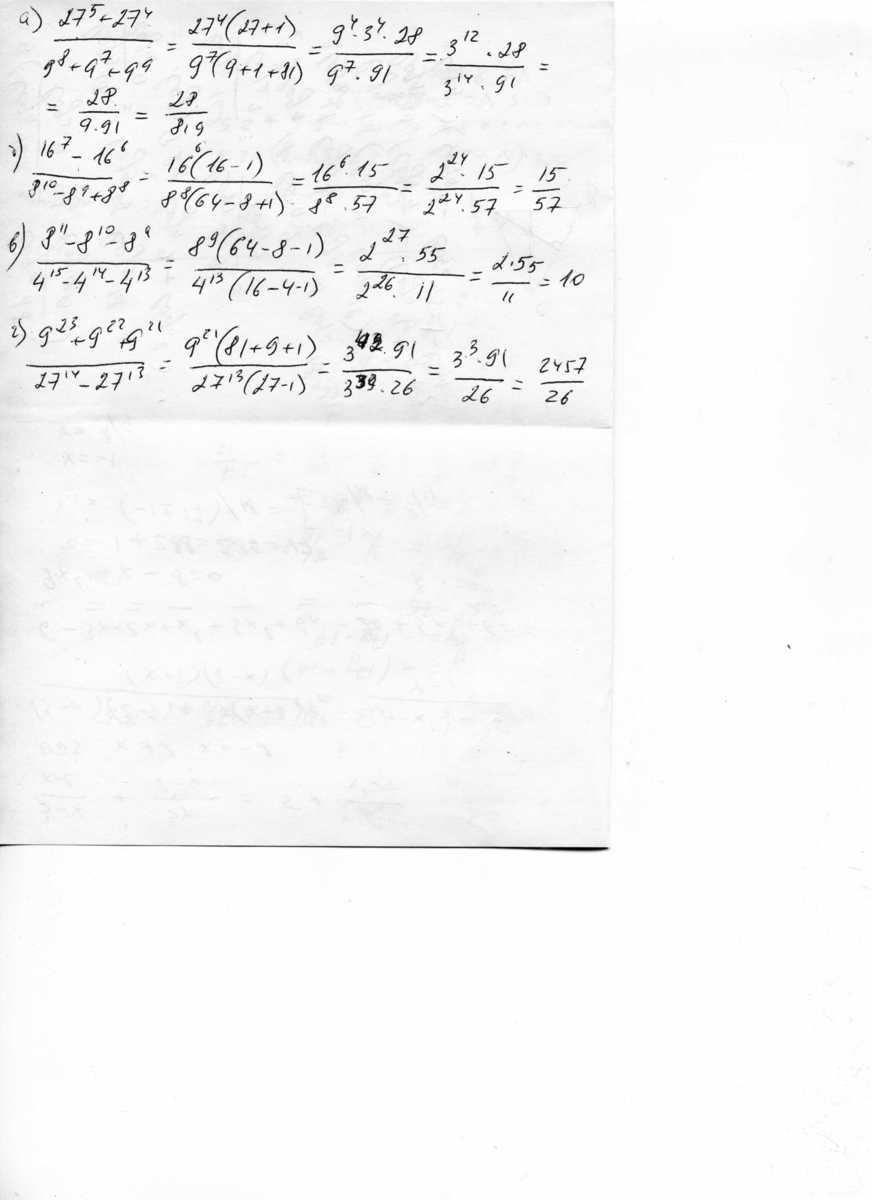 а) (27⁵+27⁴)/(9⁸+9⁷+9⁹) = (27⁴(27+1))/(9⁷(9+1+81)) = (9⁴·3⁴·28)/(9⁷·91) = (3¹²·28)/(3¹⁴·91) =
= 28/(9·91) = 28/819
(16⁷-16⁶)/(8¹⁰-8⁹+8⁸) = (16⁶(16-1))/(8⁸(64-8+1)) = (16⁶·15)/(8⁸·57) = (2²⁴·15)/(2²⁴·57) = 15/57
в) (8¹¹-8¹⁰-8⁹)/(4¹⁵-4¹⁴-4¹³) = (8⁹(64-8-1))/(4¹³(16-4-1)) = (2²⁷·55)/(2²⁶·11) = (2·55)/11 = 10
г) (9²³+9²²+9²¹)/(27¹⁴-27¹³) = (9²¹(81+9+1))/(27¹³(27-1)) = (3⁴²·91)/(3³⁹·26) = (3³·91)/26 = 2457/26